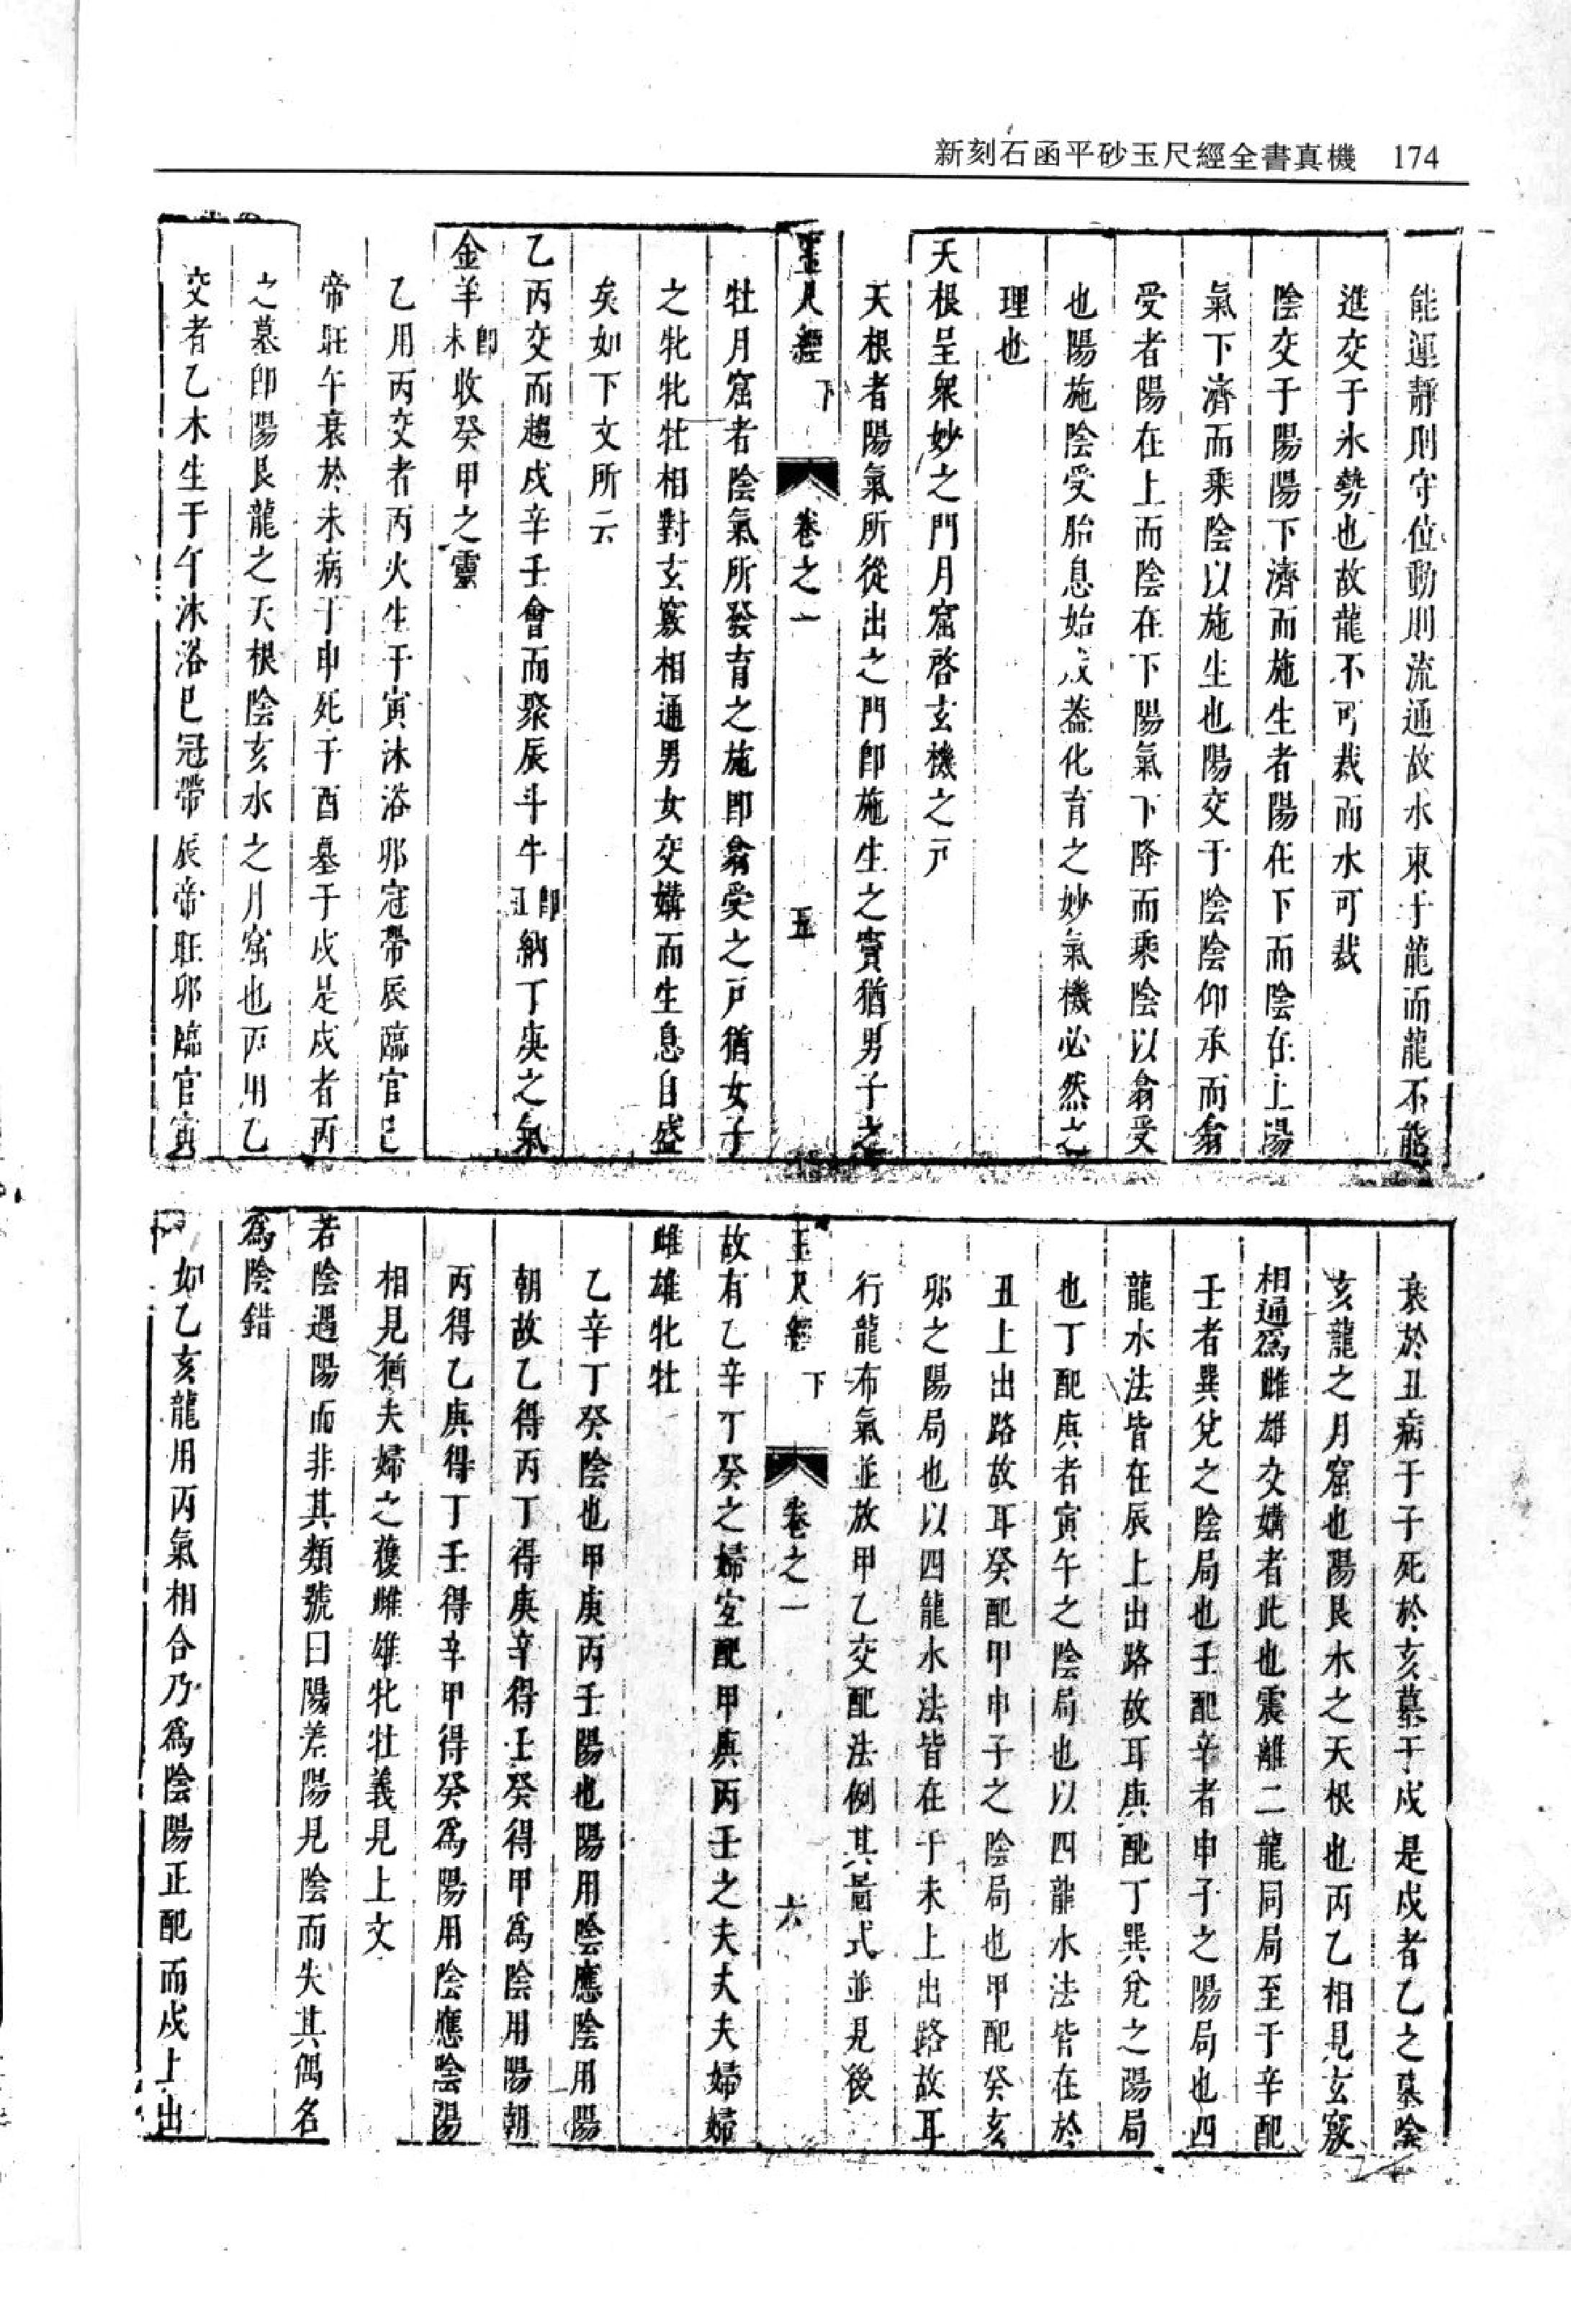 新刻石函平砂玉尺經全書真機 174
能運靜則守位動則流通故水東于龍而龍不能
進交于水勢也故龍不可裁而水可裁
陰交于陽陽下濟而施生者陽在下而陰在上陽
氣下濟而乘陰以施生也陽交于陰陰仰承而翕
受者陽在上而陰在下陽氣下降而乘陰以翕受
也陽施陰受胎息始成葢化育之妙氣機必然之
理也
天根呈衆妙之門月窟啓玄機之戸
天根者陽氣所從出之門即施生之竇猶男子之
玉尺經 下 卷之一 五
牡月窟者陰氣所發育之施即翕受之戸猶女子
之牝牝牡相對玄竅相通男女交媾而生息自盛
矣如下文所云
乙丙交而趨戌辛壬會而聚辰斗牛即丑納丁庚之氣
金羊即未收癸甲之靈
乙用丙交者丙火生于寅沐浴卯冠帶辰臨官巳
帝旺午衰於未病于申死于酉墓于戌是戌者丙
之墓即陽艮龍之天根陰亥水之月窟也丙用乙
交者乙木生于午沐浴巳冠帶辰帝旺卯臨官寅
衰於丑病于子死於亥墓于戌是戌者乙之墓陰
亥龍之月窟也陽艮水之天根也丙乙相見玄竅
相通爲雌雄交媾者此也震離二龍同局至于辛配
壬者巽兌之陰局也壬配辛者申子之陽局也四
龍水法皆在辰上出路故耳庚配丁巽兌之陽局
也丁配庚者寅午之陰局也以四龍水法皆在於
丑上出路故耳癸配甲申子之陰局也甲配癸亥
卯之陽局也以四龍水法皆在于未上出路故耳
行龍布氣並放甲乙交配法例其啚式並見後
玉尺經 下 卷之一 六
故有乙辛丁癸之婦宜配甲庚丙壬之夫夫夫婦婦
雌雄牝牡
乙辛丁癸陰也甲庚丙壬陽也陽用陰應陰用陽
朝故乙得丙丁得庚辛得壬癸得甲爲陰用陽朝
丙得乙庚得丁壬得辛甲得癸爲陽用陰應陰陽
相見猶夫婦之䕶雌雄牝牡義見上文
若陰遇陽而非其類號曰陽差陽見陰而失其偶名
爲陰錯
如乙亥龍用丙氣相合乃爲陰陽正配而戌上出